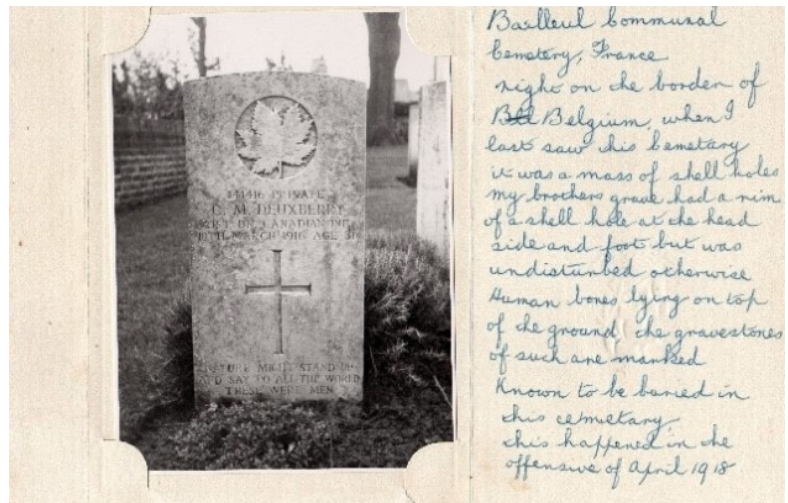 PRIVATE
C. M. DEUXBERRY
BN. CANADIAN INF.
10TH MARCH 1916 AGE 31
NATURE MIGHT STAND UP
AND SAY TO ALL THE WORLD
THESE WERE MEN
Bailleul Communal
Cemetery, France
right on the border of
Belgium, when I
last saw this Cemetary
it was a mass of shell holes
my brothers grave had a rim
of a shell hole at the head
side and foot but was
undisturbed otherwise
Human bones lying on top
of the ground the gravestones
of such are marked
Known to be buried in
this cemetary,
this happened in the
offensive of April 1918